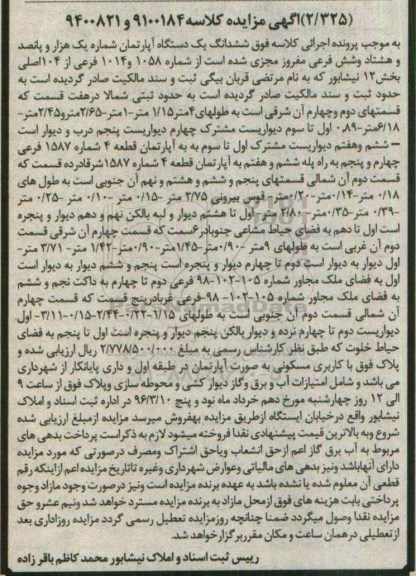 (۲/۳۲۵)آگهی مزایده کلاسه۹۱۰۰۱۸۴ و ۹۴۰۰۸۲۱
به موجب پرونده اجرائی کلاسه فوق ششدانگ یک دستگاه آپارتمان شماره یک هزار و پانصد
و هشتاد وشش فرعی مفروز مجزی شده است از شماره ۱۰۵۸ و۱۰۱۴ فرعی از ۱۰۴اصلی
بخش۱۲ نیشابور که به نام مرتضی قربان بیگی ثبت و سند مالکیت صادر گردیده است به
حدود ثبت و سند مالکیت صادر گردیده است به حدود ثبتی شمالا درهفت قسمت که
قسمتهای دوم وچهارم آن شرقی است به طولهای۴متر۱/۱۵ متر-۱متر-۲/۶۵مترو۲/۴۵متر-
۶/۱۸متر-۰/۸۹ اول تا سوم دیواریست مشترک چهارم دیواریست پنجم درب و دیوار است
– ششم وهفتم دیواریست مشترک اول تا سوم به به آپارتمان قطعه ۴ شماره ۱۵۸۷ فرعی
چهارم و پنجم به راه پله ششم و هفتم به آپارتمان قطعه ۴ شماره۱۵۸۷شرقادرده قسمت که
قسمت دوم آن شمالی قسمتهای پنجم و ششم و هشتم و نهم آن جنوبی است به طول های
۰/۱۸ متر-۰/۱۴متر-۰/۲۰متر- قوس بیرونی ۲/۷۵ متر -۰/۱۵ متر -۰/۱۰ متر -۰/۲۵ متر
-۰/۳۹ متر-۰/۳۵متر-۲/۸۰متر-اول تا هشتم دیوار و لبه بالکن نهم و دهم دیوار و پنجره
است اول تا دهم به فضای حیاط مشاعی جنوبادر۶سمت که قسمت چهارم آن شرقی قسمت
دوم آن غربی است به طولهای ۹متر -۰/۹۰متر-۱/۴۵متر-۰/۹۰متر-۱/۴۲متر- ۳/۷۱ متر-
اول دیوار به دیوار است دوم تا چهارم دیوار و پنجره است پنجم و ششم دیوار به دیوار است
اول به فضای ملک مجاور شماره ۱۰۵-۱۰۲-۹۸فرعی دوم تا چهارم به داکت پنجم و ششم
به فضای ملک مجاور شماره ۱۰۵-۱۰۲-۹۸-فرعی غربادرپنج قسمت که قسمت چهارم
آن شمالی قسمت دوم آن جنوبی است به طولهای ۱/۱۵-۰/۲۲-۲/۴۴-۰/۱۵-۳/۱۱- اول
دیواریست دوم تا چهارم نرده و دیوار بالکن پنجم دیوار و پنجره است اول تا پنجم به فضای
حیاط خلوت که طبق نظر کارشناس رسمی به مبلغ ۲/۷۷۸/۵۰۰/۰۰۰ ریال ارزیابی شده و
پلاک فوق با کاربری مسکونی به صورت آپارتمان در طبقه اول و داری پایانکار از شهرداری
می باشد و شامل امتیازات آب و برق وگاز دیوار کشی و محوطه سازی وپلاک فوق از ساعت ۹
الی ۱۲ روز چهارشنبه مورخ دهم خرداد ماه نود و پنج ۹۶/۳/۱۰ در اداره ثبت اسناد و املاک
نیشابور واقع درخیابان ایستگاه ازطریق مزایده بفروش میرسد مزایده ازمبلغ ارزیابی شده
شروع وبه بالاترین قیمت پیشنهادی نقدا فروخته میشود لازم به ذکراست پرداخت بدهی های
مربوط به آب برق گاز اعم ازحق انشعاب ویاحق اشتراک ومصرف درصورتی که مورد مزایده
دارای آنهاباشد ونیز بدهی های مالیاتی وعوارض شهرداری وغیره تاتاریخ مزایده اعم ازاینکه رقم
قطعی آن معلوم شده یا نشده باشد به عهده برنده مزایده است ونیز درصورت وجود مازاد وجوه
پرداختی بابت هزینه های فوق ازمحل مازاد به برنده مزایده مسترد خواهد شد ونیم عشرو حق
مزایده نقدا وصول میگردد ضمنا چنانچه روزمزایده تعطیل رسمی گردد مزایده روزاداری بعد
ازتعطیلی درهمان ساعت و مکان مقرربرگزارخواهد شد.
رییس ثبت اسناد و املاک نیشابور محمد کاظم باقر زاده